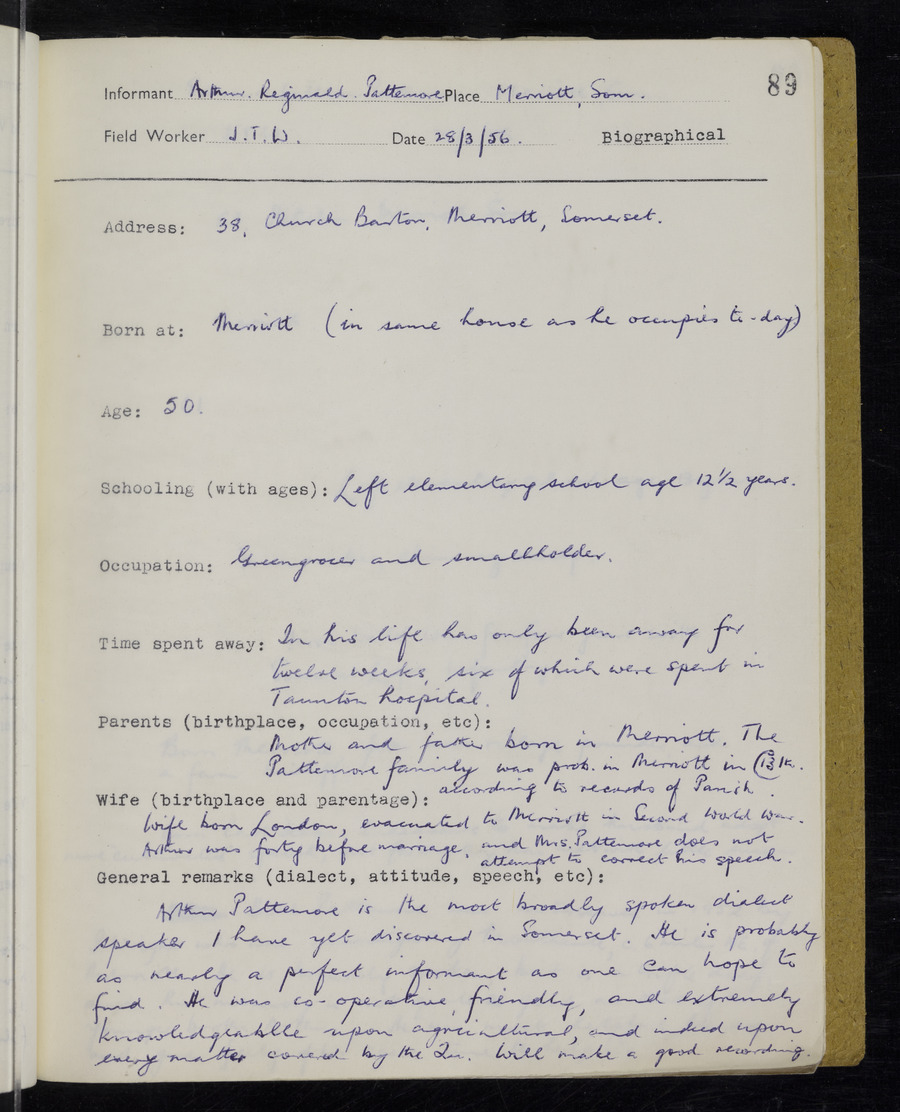 89
Informant Arthur. Reginald. Pattemore Place Merriott, Som.
Field Worker J.T.W. Date 28/3/56. Biographical
Address: 38, Church Barton, Merriott, Somerset.
Born at: Merriott (in same house as he occupies to-day)
Age: 50.
Schooling (with ages): Left elementary school age 12½ years.
Occupation: Greengrocer and smallholder.
Time spent away: In his life has only been away for
twelve weeks, six of which were spent in
Taunton hospital.
Parents (birthplace, occupation, etc):
Mother and father born in Merriott. The
Pattemore family was prob. in Merriott in C13th.
according to records of Parish.
Wife (birthplace and parentage):
Wife born London, evacuated to Merriott in Second World War.
Arthur was forty before marriage, and Mrs. Pattemore does not
attempt to correct his speech.
General remarks (dialect, attitude, speech, etc):
Arthur Pattemore is the most broadly spoken dialect
speaker I have yet discovered in Somerset. He is probably
as nearly a perfect informant as one can hope to
find. He was co-operative, friendly, and extremely
knowledgeablle upon agricultural, and indeed upon
every matter covered by the Qu. Will make a good recording.